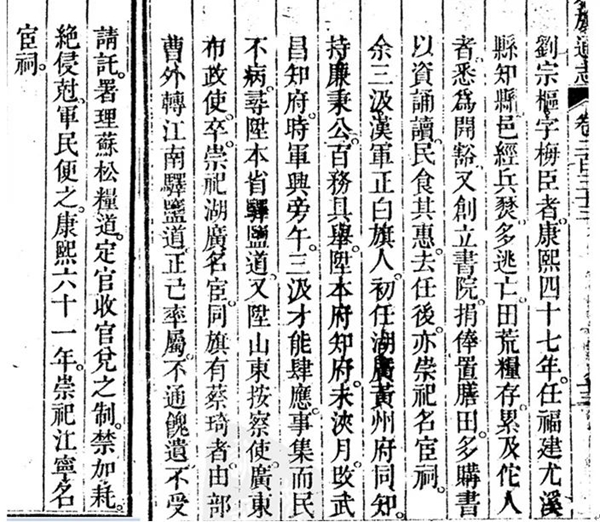 通志 卷
劉宗樞字梅臣者。康熙四十七年任福建尤溪
縣知縣邑經兵燹多逃亡田荒糧存累及佗人
者悉爲開豁又創立書院捐俸置膳田多購書
以資誦讀民食其惠去任後亦崇祀名宦祠。
余三汲漢軍正白旗人初任湖廣黃州府同知。
持廉秉公百務具舉。陞本府知府。未浹月改武
昌知府。時軍興旁午三汲才能肆應事集而民
不病。尋陞本省驛鹽道。又陞山東按察使廣東
布政使。卒。崇祀湖廣名宦。同旗有蔡琦者。由部
曹外轉江南驛鹽道。正己率屬。不通餽遺。不受
請託。署理蘇松糧道。定官收官兌之制。禁加耗。
絶侵尅。軍民便之。康熙六十一年。崇祀江寧名
宦祠。